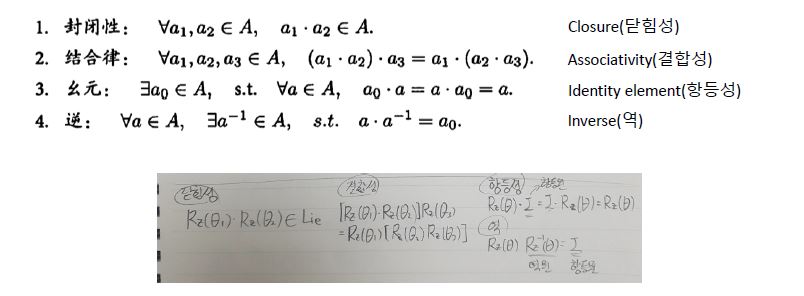 1. 封闭性: ∀a₁,a₂ ∈ A, a₁·a₂ ∈ A. Closure(닫힘성)
2. 结合律: ∀a₁,a₂,a₃ ∈ A, (a₁·a₂)·a₃ = a₁·(a₂·a₃). Associativity(결합성)
3. 幺元: ∃a₀ ∈ A, s.t. ∀a ∈ A, a₀·a = a·a₀ = a. Identity element(항등성)
4. 逆: ∀a ∈ A, ∃a⁻¹ ∈ A, s.t. a·a⁻¹ = a₀. Inverse(역)
닫힘성
Rz(θ₁)·Rz(θ₂) ∈ Lie
결합성
[Rz(θ₁)·Rz(θ₂)]Rz(θ₃)
=Rz(θ₁)[Rz(θ₂)Rz(θ₃)]
항등성 항등원
Rz(θ)·I = I·Rz(θ)=Rz(θ)
역
Rz(θ) Rz⁻¹(θ)= I
역원 항등원